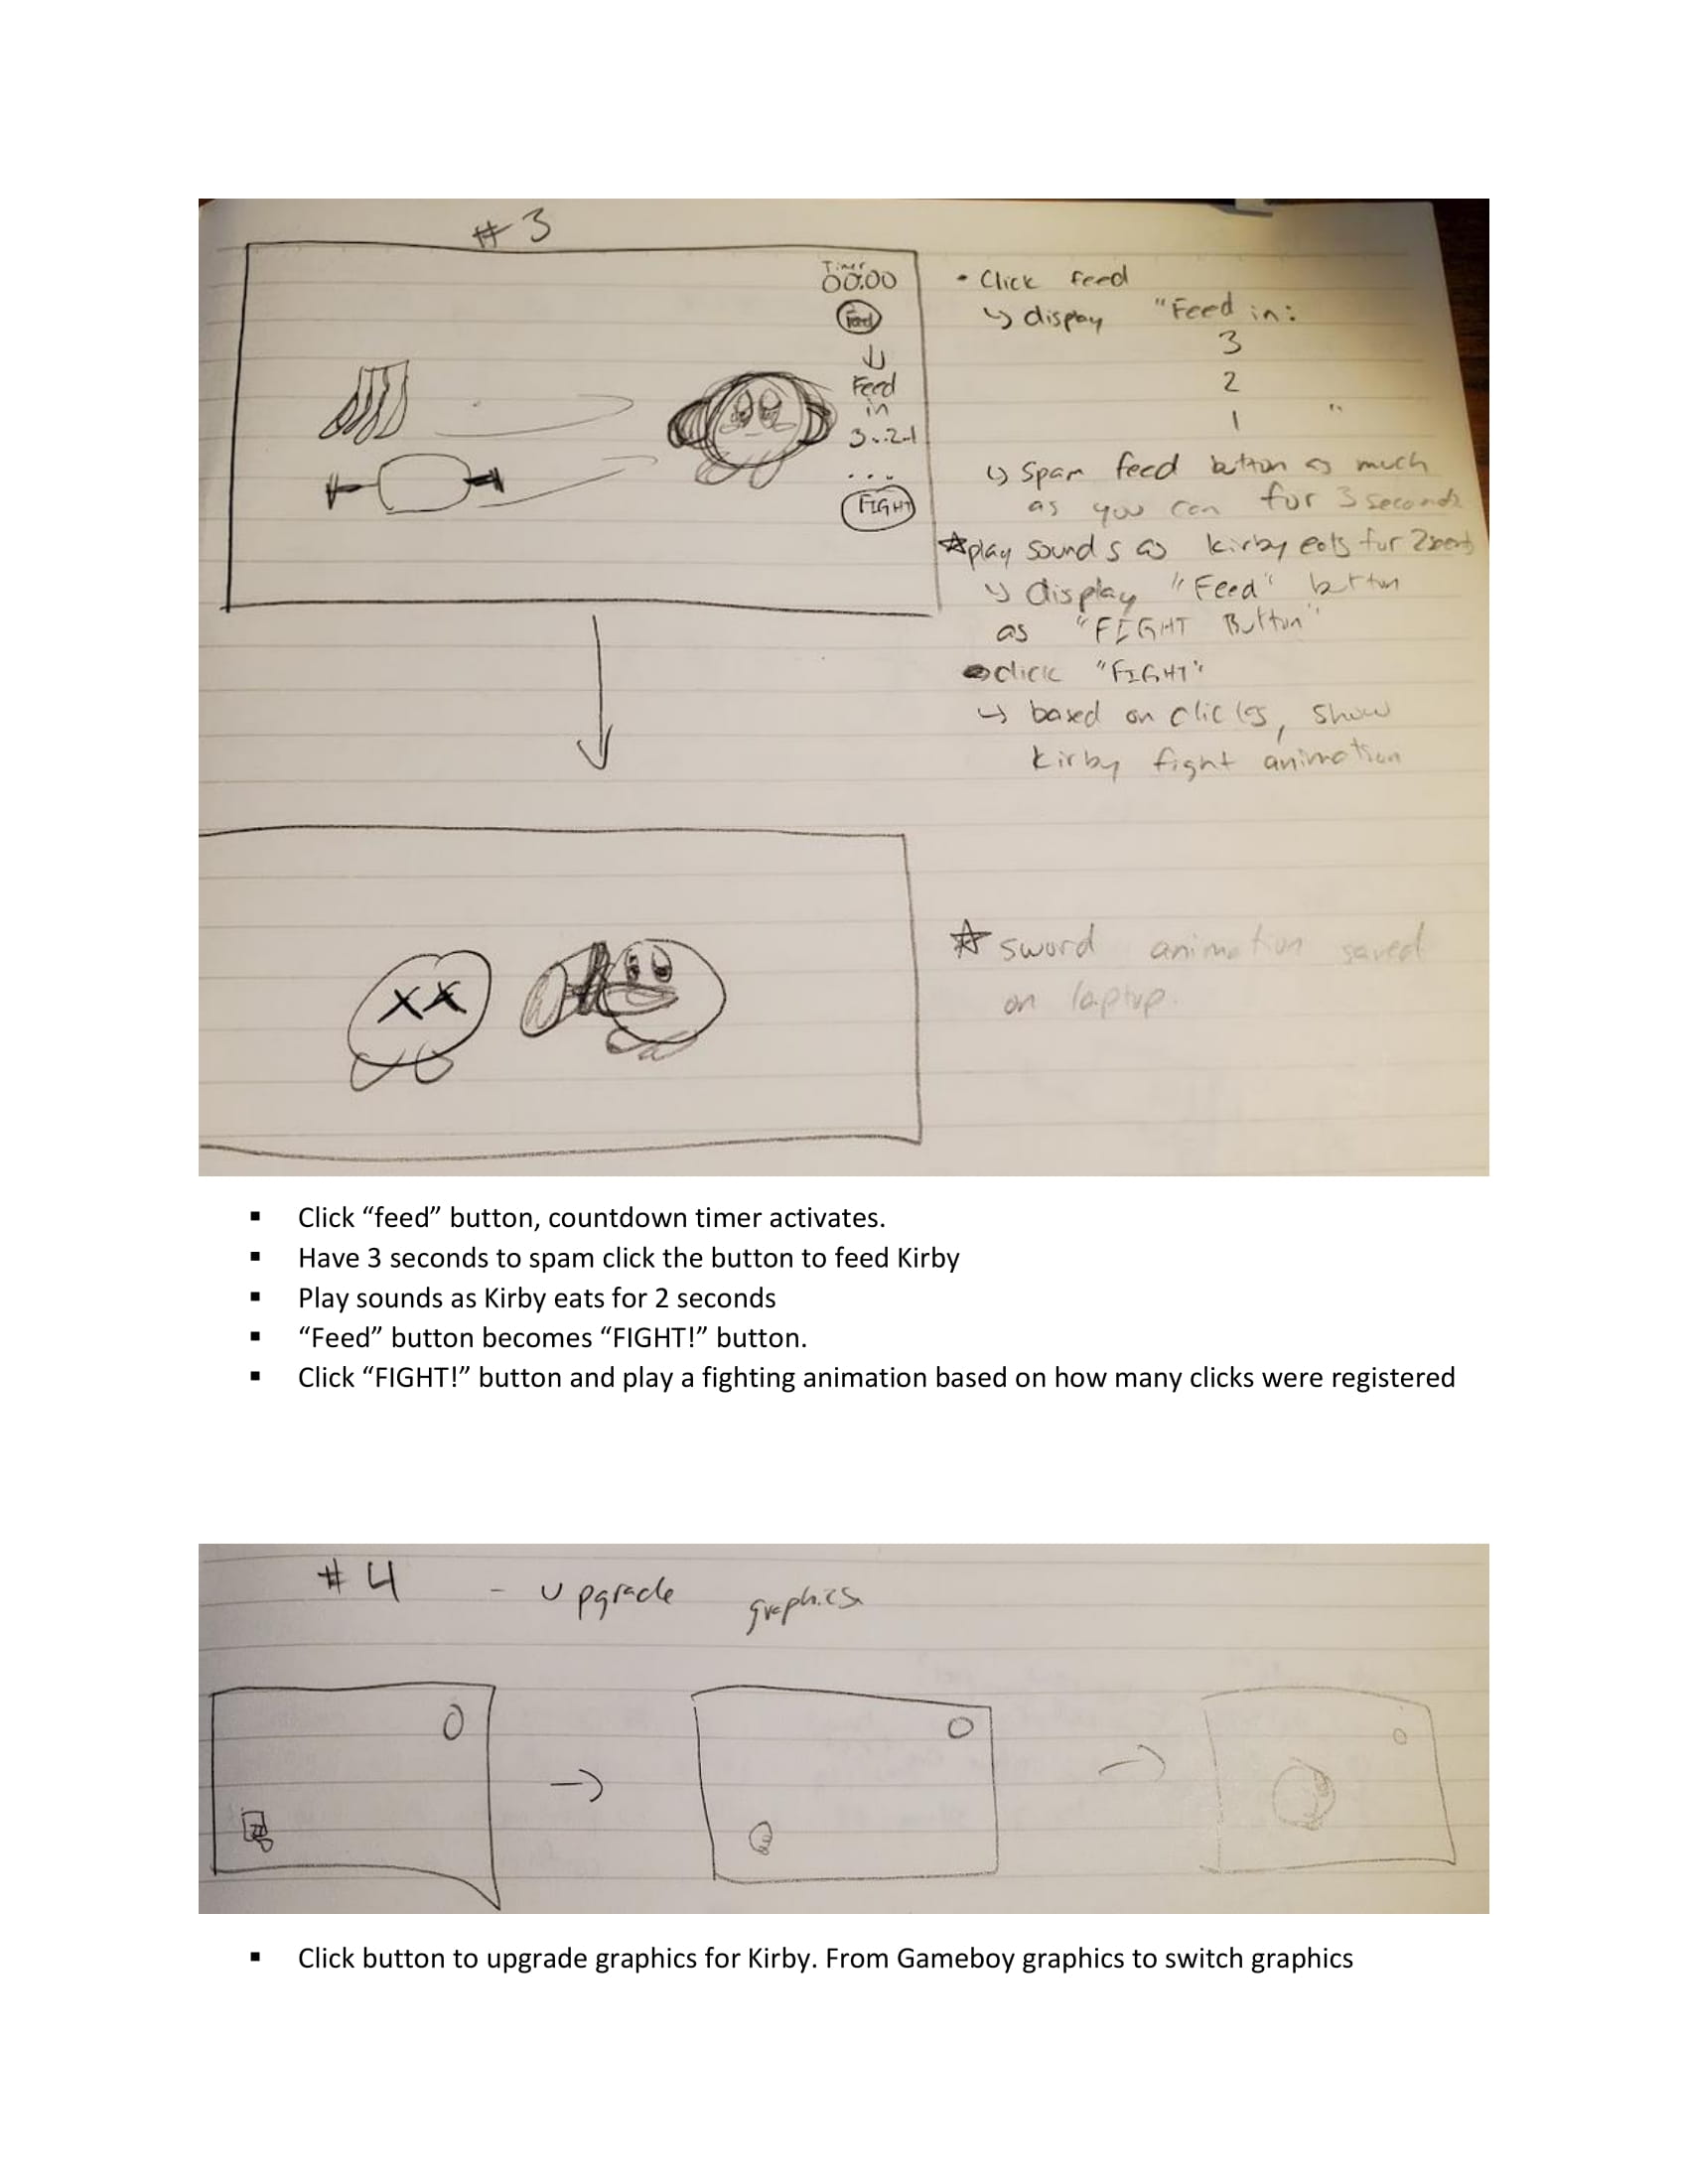 #3
Timer
00:00
Feed
Feed
in
3..2.1
...
FIGHT
• Click feed
↳ display "Feed in:
3
2
1 "
↳ Spam feed button as much
as you can for 3 seconds
☆play sounds as kirby eats for 2 seconds
↳ display "Feed" button
as "FIGHT Button"
click "FIGHT"
↳ based on clicks, show
kirby fight animation
☆ sword animation saved
on laptop.
▪ Click “feed” button, countdown timer activates.
▪ Have 3 seconds to spam click the button to feed Kirby
▪ Play sounds as Kirby eats for 2 seconds
▪ “Feed” button becomes “FIGHT!” button.
▪ Click “FIGHT!” button and play a fighting animation based on how many clicks were registered
#4 - upgrade graphics
▪ Click button to upgrade graphics for Kirby. From Gameboy graphics to switch graphics